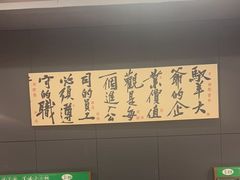 大
爺的企
業價值
觀是每
一個進公
司的員工
必須遵
守的職